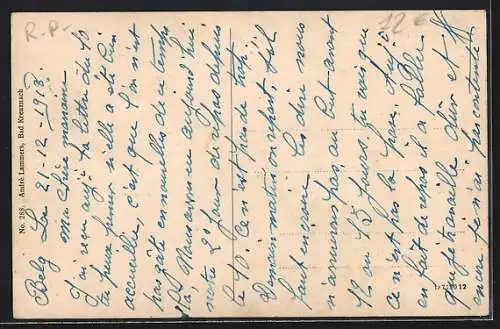 R.P.
12 €
No. 288. André Lammers, Bad Kreuznach
Belg Le 21-12-1918.
Ma Chère maman
J'ai reçu auj. ta lettre du 10
tu peux penser si elle a été bien
accueillie, c'est que l'on n'est
pas gâté en nouvelles de ce temps
là. Nous avons eu aujourd'hui
notre 2e jour de repos depuis
le 10. Ce n'est pas de trop.
Demain matin on repart, il
faut encore les dire nous
n'arriverons pas au but avant
12 ou 15 jours, tu vois que
ce n'est pas la paix. Auj.
en fait de repos il a fallu
travailler dur et
encore pas contents.